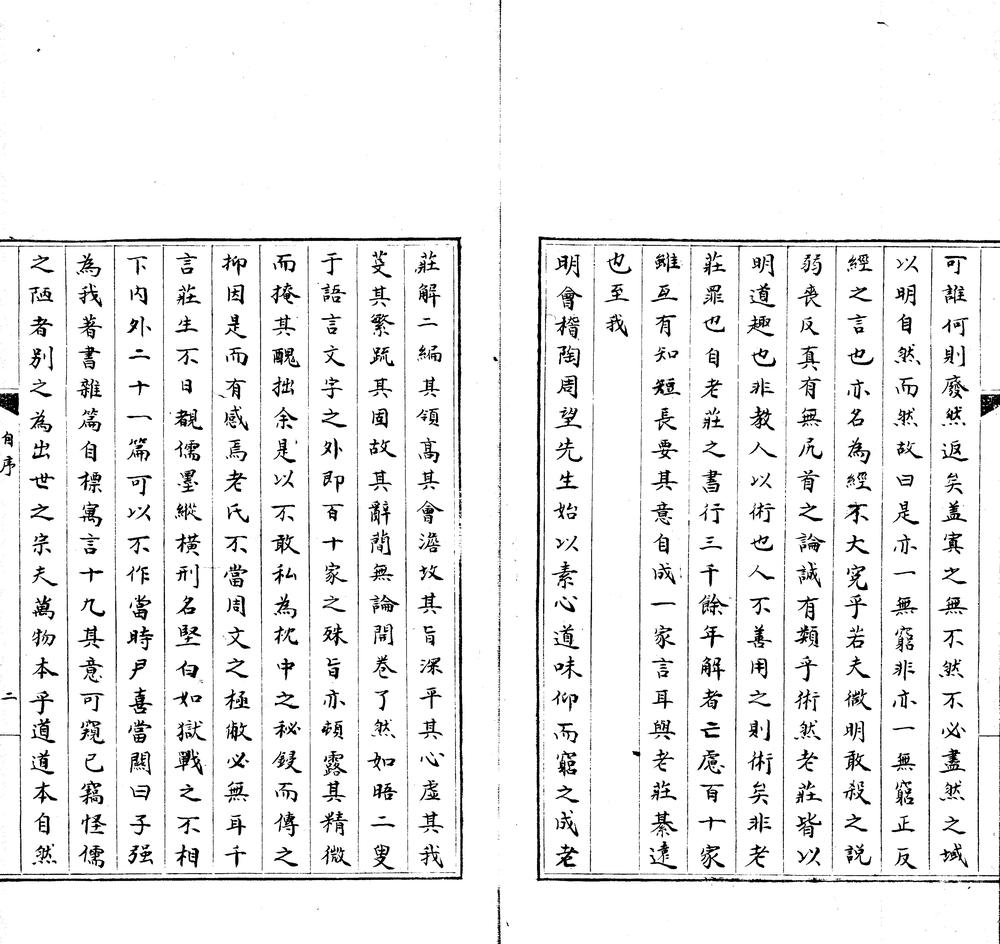 可誰何則廢然返矣盖寘之無不然不必盡然之域
以明自然而然故曰是亦一無窮非亦一無窮正反
經之言也亦名為經不大究乎若夫微明敢殺之説
弱喪反真有無尻首之論誠有類乎術然老莊皆以
明道趣也非教人以術也人不善用之則術矣非老
莊罪也自老莊之書行三千餘年解者亡慮百十家
雖亙有知短長要其意自成一家言耳與老莊綦遠
也至我
明會稽陶周望先生始以素心道味仰而窮之成老
莊解二編其領髙其會澹故其旨深平其心虛其我
芟其繁䟽其固故其辭簡無論閤卷了然如晤二叟
于語言文字之外即百十家之殊旨亦頓露其精微
而掩其醜拙余是以不敢私為枕中之秘鋟而傳之
抑因是而有感焉老氏不當周文之極敝必無耳千
言莊生不日覩儒墨縱横刑名堅白如獄戰之不相
下内外二十一篇可以不作當時尹喜當關曰子强
為我著書雜篇自標寓言十九其意可窺已竊怪儒
之陋者别之為出世之宗夫萬物本乎道道本自然
自序
二